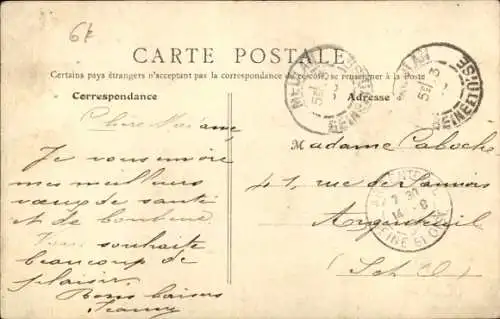 6f
CARTE POSTALE
Certains pays étrangers n'acceptent pas la correspondance au recto, se renseigner à la Poste
Correspondance
Adresse
Chère Madame
Je vous envoie
mes meilleurs
vœux de santé
et de bonheur
souhaite
beaucoup de
plaisir.
Bons baisers
Madame Caboche
41, rue des
Argenteuil
S et O
SEINE ET OISE